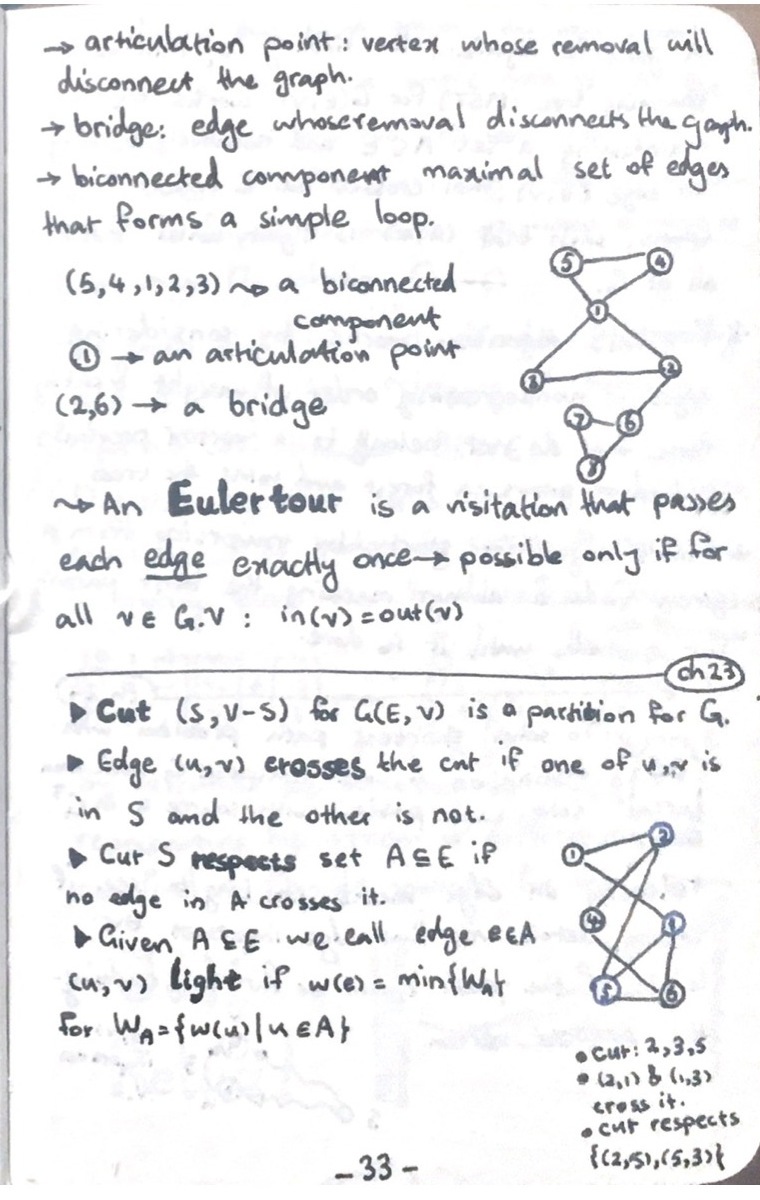 → articulation point: vertex whose removal will
disconnect the graph.
→ bridge: edge whose removal disconnects the graph.
→ biconnected component maximal set of edges
that forms a simple loop.
(5,4,1,2,3) ⇝ a biconnected
component
① → an articulation point
(2,6) → a bridge
5 4
1
3 2
7 6
8
⇝ An Euler tour is a visitation that passes
each edge exactly once → possible only if for
all v ∈ G.V : in(v) = out(v)
ch 23
▶ Cut (S, V-S) for G(E, V) is a partition for G.
▶ Edge (u,v) crosses the cut if one of u,v is
in S and the other is not.
▶ Cut S respects set A ⊆ E if
no edge in A crosses it.
▶ Given A ⊆ E we call edge e∈A
(u,v) light if w(e) = min{W_A}
for W_A = {w(u) | u ∈ A}
1 2
4
5 6
• cut: 2,3,5
• (2,1) & (1,3)
cross it.
• cut respects
{(2,5),(5,3)}
- 33 -